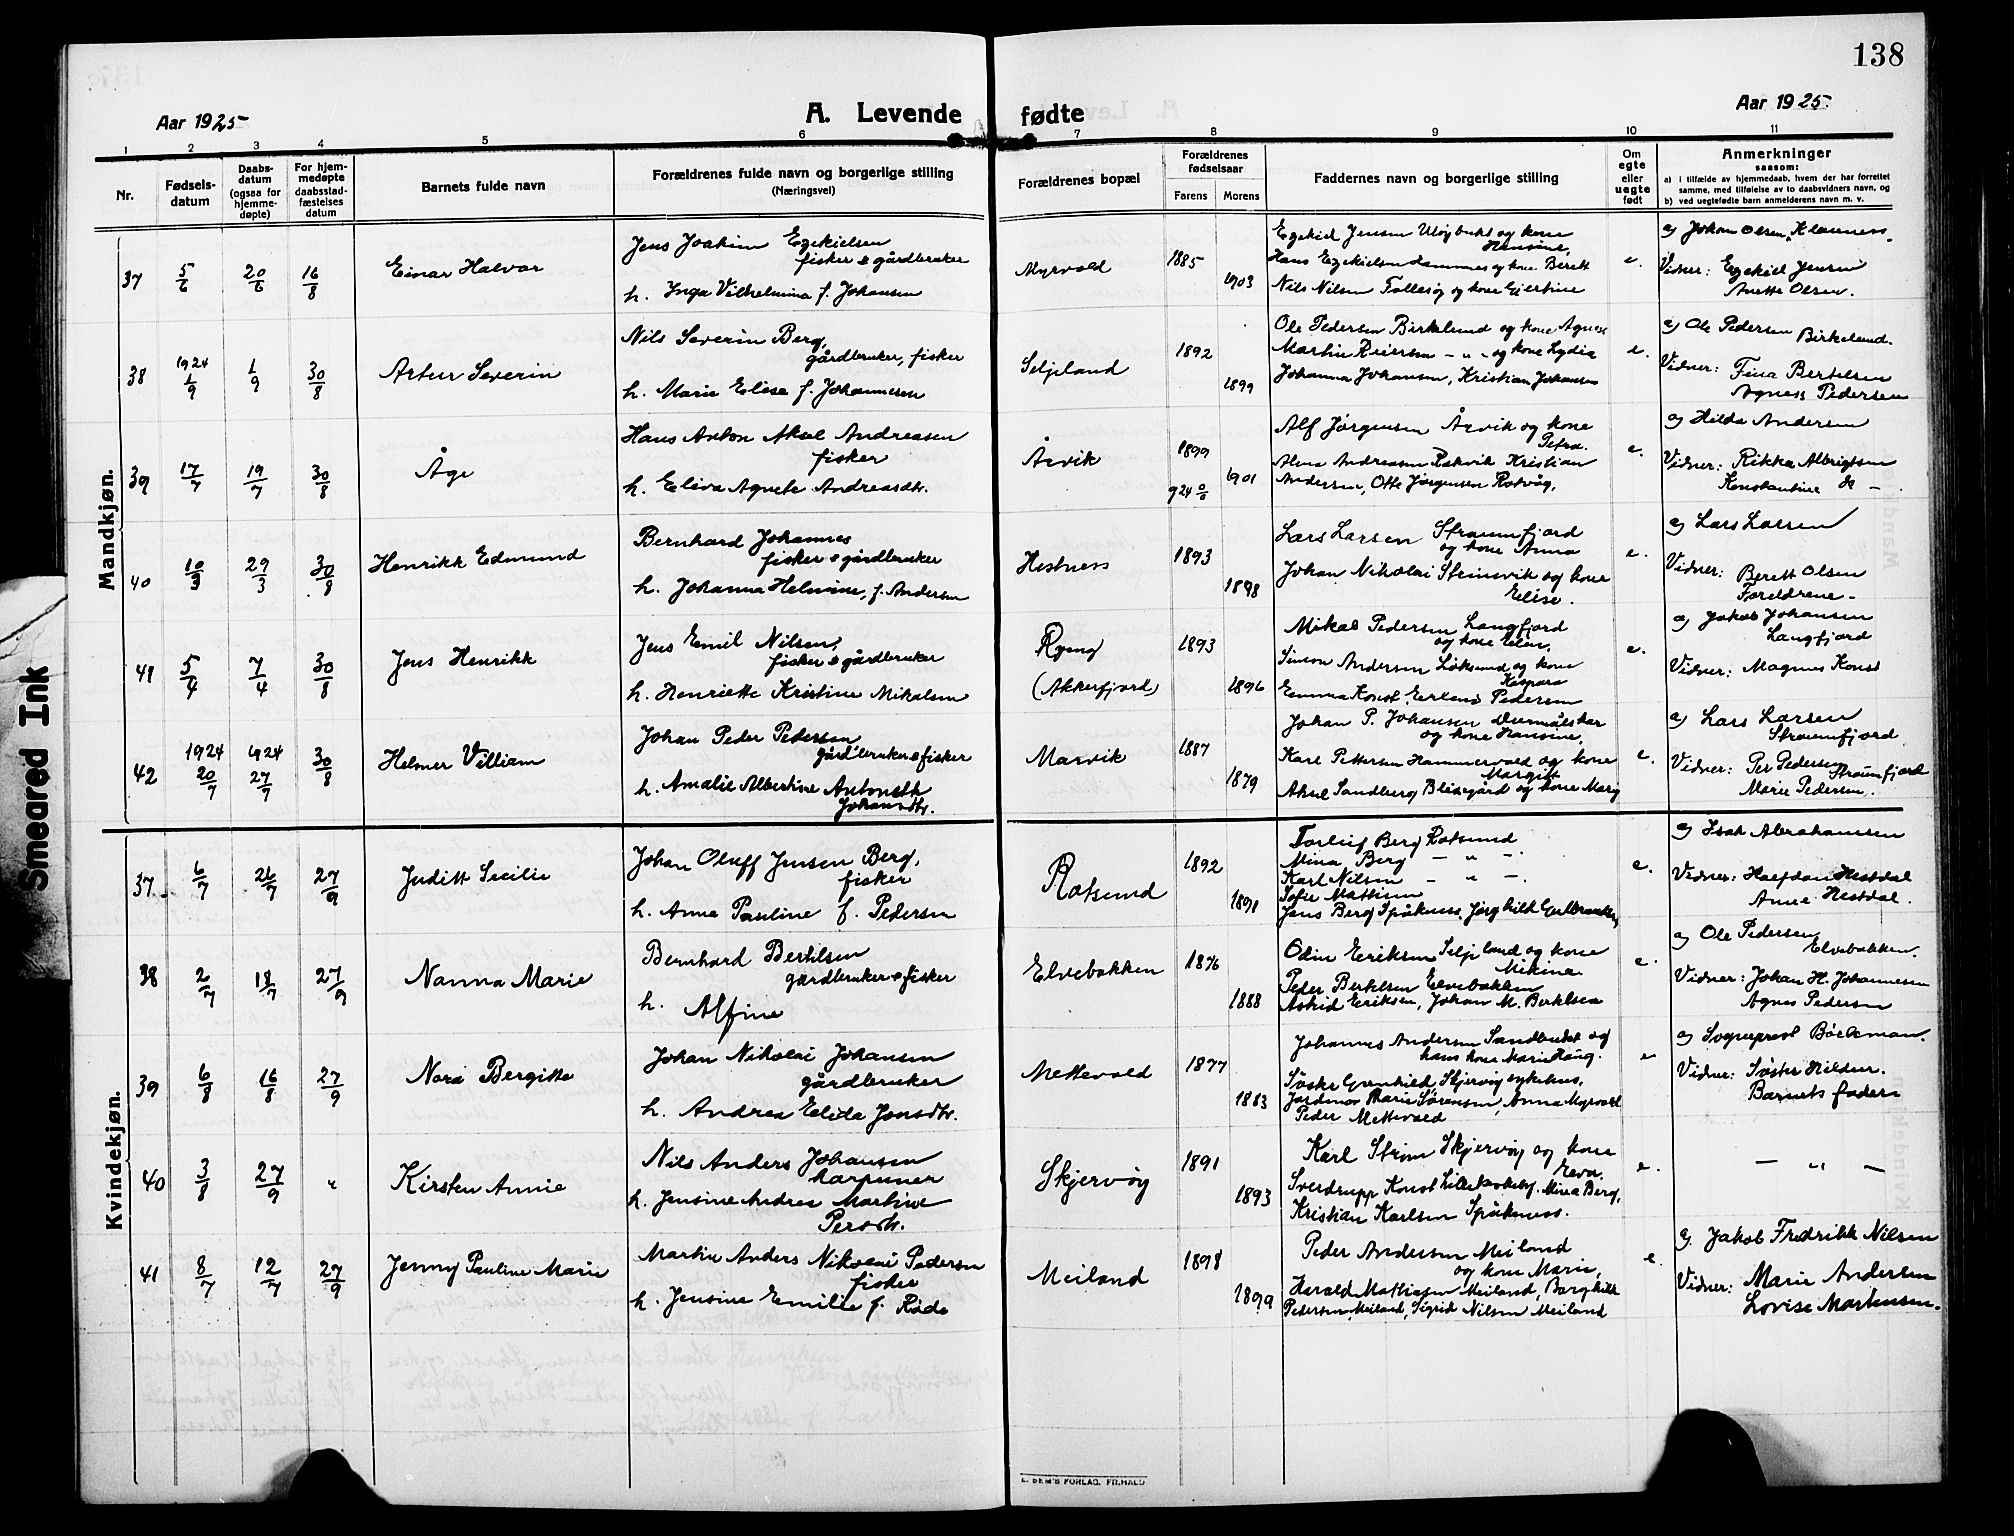 138
Aar 1925
A. Levende
fødte
Aar 1925.
1 2 3 4 5 6 7 8 9 10 11
Nr.
Fødsels-
datum
Daabs-
datum
(ogsaa for
hjemme-
døpte)
For hjem-
medøpte
daabsstad-
fæstelses
datum
Barnets fulde navn
Forældrenes fulde navn og borgerlige stilling
(Næringsvei)
Forældrenes bopæl
Forældrenes
fødselsaar
Farens Morens
Faddernes navn og borgerlige stilling
Om
egte
eller
uegte
født
Anmerkninger
saasom:
a) i tilfælde av hjemmedaab, hvem der har forrettet
samme, med tilføielse av to daabsvidners navn, og
b) ved uegtefødte barn anmelderens navn m. v.
Mandkjøn.
37 5/6 20/6 16/8 Einar Halvor
Jens Joakim Ezekielsen
fisker & gårdbruker
h. Inga Vilhelmina f. Johansen
Myrvold
1885
1903
Ezekiel Jensen og kone
Hansine,
Hans Ezekielsen og kone Berett
Nils Nilsen og kone
e.
a) Johan Olsen,
Vidner: Ezekiel Jensen
Anette Olsen.
38 1924 1/9 1/9 30/8 Artur Severin
Nils Severin Berg,
gårdbruker, fisker
h. Marie Elise f. Johannesen
Seljeland
1892
1899
Ole Pedersen Birkelund og kone Agness
Martin Reiersen - " - og kone Lydia
Johanna Johansen, Kristian Johansen
e.
a) Ole Pedersen
Birkelund.
Vidner: Fina Bertelsen
Agness Pedersen
39 17/7 19/7 30/8 Åge
Hans Anton Aksel Andreasen
fisker
h. Eliva Agnete Andreasdtr.
Årvik
1899
1901
Alf Jørgensen Årvik og kone
Petra.
Alma Andreasen Kristian
Andersen, Otto Jørgensen Rotvåg,
e.
a) Hilda Andersen
Vidner: Rikka Albrigtsen
Konstantine do -
40 10/3 29/3 30/8 Henrikk Edmund
Bernhard Johannes
fisker & gårdbruker
h. Johanna Helmine, f. Andersen
Hestness
1893
1898
Lars Larsen Straumfjord
og kone Anna
Johan Nikolai Steinsvik og kone
Elise.
e.
a) Lars Larsen
Vidner: Berett Olsen
Foreldrene -
41 5/4 7/4 30/8 Jens Henrikk
Jens Emil Nilsen,
fisker & gårdbruker
h. Henriette Kristine Mikalsen
(Akkerfjord)
1893
1896
Mikal Pedersen Langfjord
og kone Elen,
Simon Andersen Løksund og kone
Kaspara
Emma Konst, Erlend Pedersen
e.
a) Jakob Johansen
Langfjord
Vidner: Magnus Konst
42 1924 20/7 1924 27/7 30/8 Helmer Villiam
Johan Peder Pedersen
gårdbruker & fisker
h. Amalie Albertine Antonette
Johansdtr.
Marvik
1887
1879
Johan P. Johansen
og kone Hansine,
Karl Pettersen Hammervold og kone
Margit
Aksel Sandberg Blisegård og kone Mary
e.
a) Lars Larsen
Straumfjord
Vidner: Per Pedersen
Straumfjord
Marie Pedersen.
Kvindekjøn.
37 6/7 26/7 27/9 Juditt Secilie
Johan Oluff Jensen Berg,
fisker
h. Anna Pauline f. Pedersen
Rotsund
1892
1891
Torleif Berg Rotsund
Mina Berg - " -
Karl Nilsen - " -
Sofie Mathisen
Jens Berg Spåkness,
e.
a) Isak Abrahamsen
Vidner: Halfdan Hestdal
Anna Hestdal.
38 2/7 18/7 27/9 Nanna Marie
Bernhard Bertilsen
gårdbruker & fisker
h. Alfine
Elvebakken
1876
1888
Odin Eriksen Seljeland og kone
Mikine
Peder Bertelsen Elvebakken
Astrid Eriksen, Johan M. Bertelsen
e.
a) Ole Pedersen
Elvebakken.
Vidner: Johan H. Johannesen
Agnes Pedersen
39 6/8 16/8 27/9 Nora Bergitte
Johan Nikolai Johansen
gårdbruker
h. Andrea Elida Jensdtr.
Mettevold
1877
1883
Johannes Andersen Sandbukt og
hans kone Marie Haug.
Søster Gunhild, Skjervøy sykehus,
Jordmor Marie Sørensen, Anna Myrvold
Peder Mettevold
e
a) Sogneprest Bøckman.
Vidner: Søster Hildur.
Barnets fader
40 3/8 27/9 " Kirsten Annie
Nils Anders Johansen
harpuner
h. Jensine Andrea Martine
Persdtr.
Skjervøy
1891
1893
Karl Strøm Skjervøy og kone
Eva.
Sverdrupp Konst Mina Berg,
Kristian Karlsen Spåkness.
e.
- " -
41 8/7 12/7 27/9 Jenny Pauline Marie
Martin Anders Nikolai Pedersen
fisker
h. Jensine Emilie f. Røde
Meiland
1898
1899
Peder Andersen Meiland
og kone Marie,
Harald Mathisen Meiland, Borghild
Pedersen, Meiland, Sigrid Nilsen Meiland
e.
a. Jakob Fredrikk Nilsen
Vidner: Marie Andersen
Lovise Martensen.
E. SEM'S FORLAG. FR.HALD
Smeared Ink